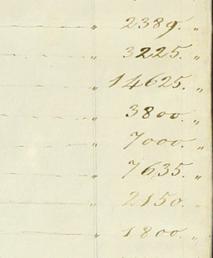 " 2389. "
" 3225. "
" 14625. "
" 3800. "
" 7000. "
" 7635. "
" 2150. "
" 1800. "